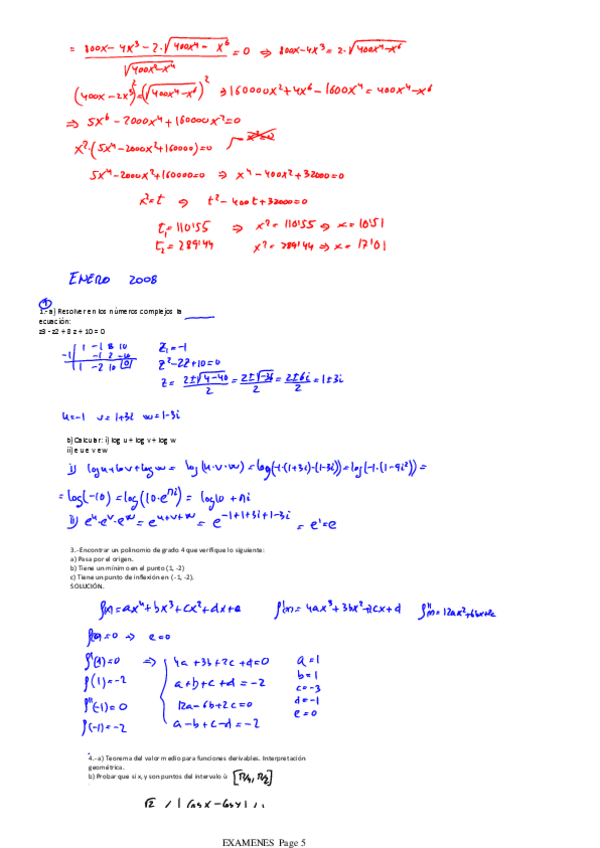 = 800x-4x³-2·√(400x⁴-x⁶) / √(400x²-x⁴) = 0 ⇒ 800x-4x³ = 2·√(400x⁴-x⁶)
(400x-2x³)² = (√(400x⁴-x⁶))² ⇒ 160000x²+4x⁶-1600x⁴ = 400x⁴-x⁶
⇒ 5x⁶-2000x⁴+160000x²=0
x²·(5x⁴-2000x²+160000)=0
5x⁴-2000x²+160000=0 ⇒ x⁴-400x²+32000=0
x²=t ⇒ t²-400t+32000=0
t₁=110'55 ⇒ x²=110'55 ⇒ x=10'51
t₂=289'44 x²=289'44 ⇒ x=17'01
ENERO 2008
1.- a) Resolver en los números complejos la
ecuación:
z3 - z2 + 8 z + 10 = 0
1 -1 8 10
-1 -1 2 -10
1 -2 10 0
z₁=-1
z²-2z+10=0
z = (2±√(4-40))/2 = (2±√-36)/2 = (2±6i)/2 = 1±3i
u=-1 v=1+3i w=1-3i
b)Calcular: i) log u + log v + log w
ii) e u e v e w
i) log u+log v+log w = log(u·v·w) = log(-1·(1+3i)·(1-3i)) = log(-1·(1-9i²)) =
= log(-10) = log(10·e^(πi)) = log10 + πi
ii) e^u·e^v·e^w = e^(u+v+w) = e^(-1+1+3i+1-3i) = e¹=e
3.-Encontrar un polinomio de grado 4 que verifique lo siguiente:
a) Pasa por el origen.
b) Tiene un mínimo en el punto (1, -2)
c) Tiene un punto de inflexión en (-1, -2).
SOLUCIÓN.
f(x)=ax⁴+bx³+cx²+dx+e f'(x)=4ax³+3bx²+2cx+d f''(x)=12ax²+6bx+2c
f(0)=0 ⇒ e=0
f'(1)=0 ⇒ 4a+3b+2c+d=0 a=1
f(1)=-2 a+b+c+d=-2 b=1
c=-3
f''(-1)=0 12a-6b+2c=0 d=-1
f(-1)=-2 a-b+c-d=-2 e=0
4.- a) Teorema del valor medio para funciones derivables. Interpretación
geométrica.
b) Probar que si x, y son puntos del intervalo ù [π/4, π/2]
EXAMENES Page 5